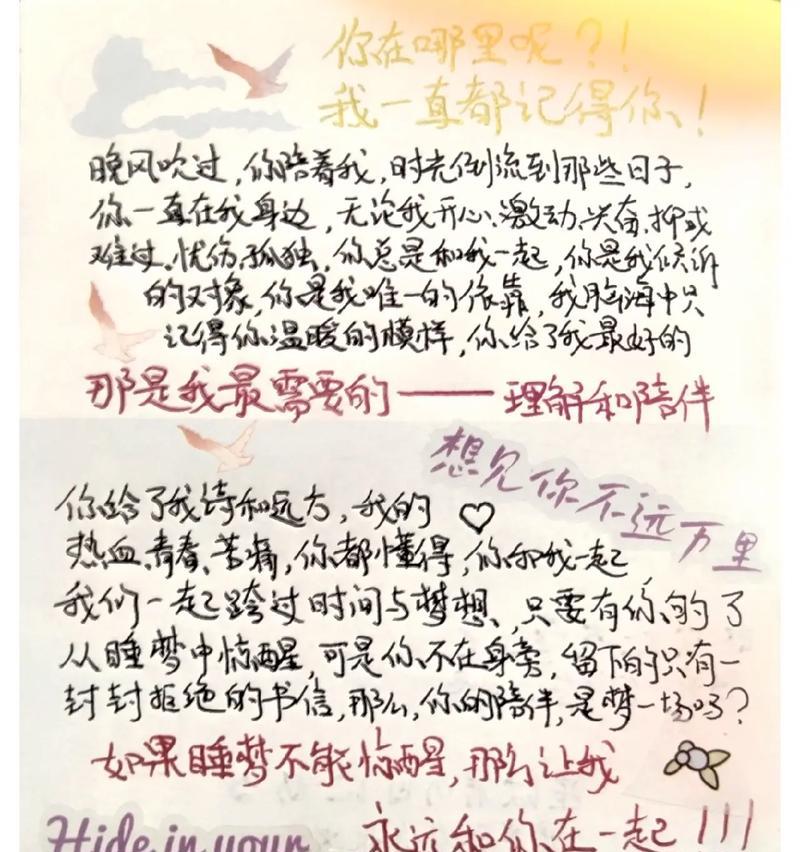 你在哪里呢？！
我一直都记得你！
晚风吹过，你陪着我，时光倒流到那些日子，
你一直在我身边，无论我开心、激动、兴奋，抑或
难过、忧伤、孤独，你总是和我一起，你是我倾诉
的对象，你是我唯一的依靠，我脑海中只
记得你温暖的模样，你给了我最好的
那是我最需要的——理解和陪伴
想见你不远万里
你给了我诗和远方，我的♡
热血、青春、苦痛，你都懂得，你和我一起
我们一起跨过时间与梦想、只要有你的了
从睡梦中惊醒，可是你不在身旁，留下的只有一
封封拒绝的书信，那么，你的陪伴，是梦一场吗？
如果睡梦不能惊醒，那么让我
Hide in your
永远和你在一起！！！